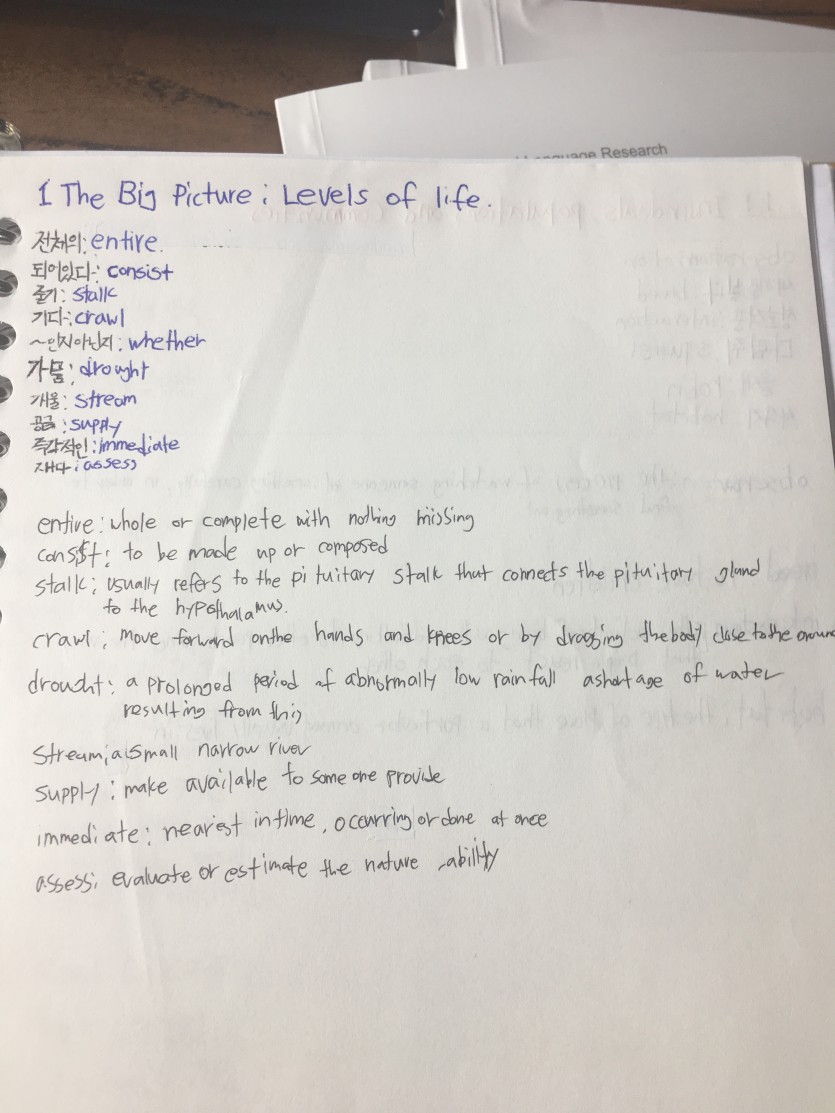 Language Research
1 The Big Picture : Levels of life.
전체의: entire.
되어있다: consist
줄기: stalk
기다: crawl
~인지아닌지: whether
가뭄: drought
개울: stream
공급: supply
즉각적인: immediate
재다: assess
entire: whole or complete with nothing missing
consist: to be made up or composed
stalk: usually refers to the pituitary stalk that connects the pituitary gland
to the hypothalamus.
crawl: move forward onthe hands and knees or by dragging the body close to the ground
drought: a prolonged period of abnormally low rainfall ashortage of water
resulting from this
stream: a small narrow river
supply: make available to some one provide
immediate: nearest in time, occurring or done at once
assess: evaluate or estimate the nature, ability